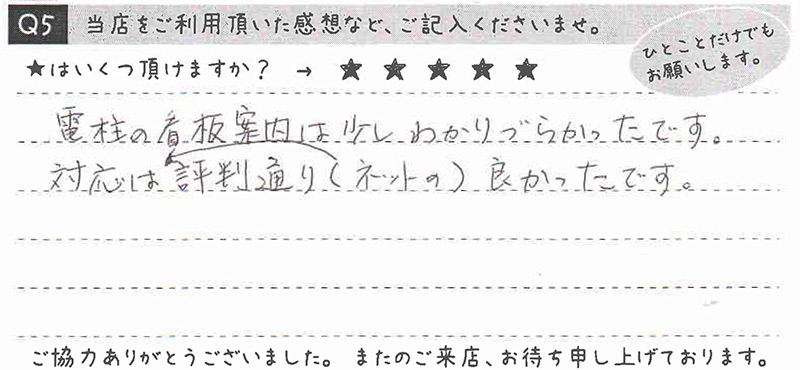 Q5 当店をご利用頂いた感想など、ご記入くださいませ。
ひとことだけでも
お願いします。
★はいくつ頂けますか？ → ★ ★ ★ ★ ★
電柱の看板案内は少しわかりづらかったです。
対応は評判通り(ネットの)良かったです。
ご協力ありがとうございました。 またのご来店、お待ち申し上げております。